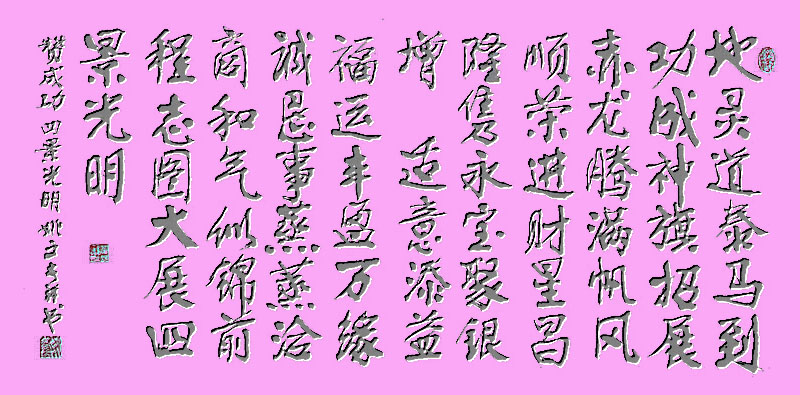 地灵道泰马到
功成神旗招展
赤龙腾满帆风
顺荣进财星昌
隆隽永宝聚银
增 适意添益
福运丰盈万缘
诚恳事蒸蒸洽
商和气似锦前
程志图大展四
景光明
赞成功四景光明姚